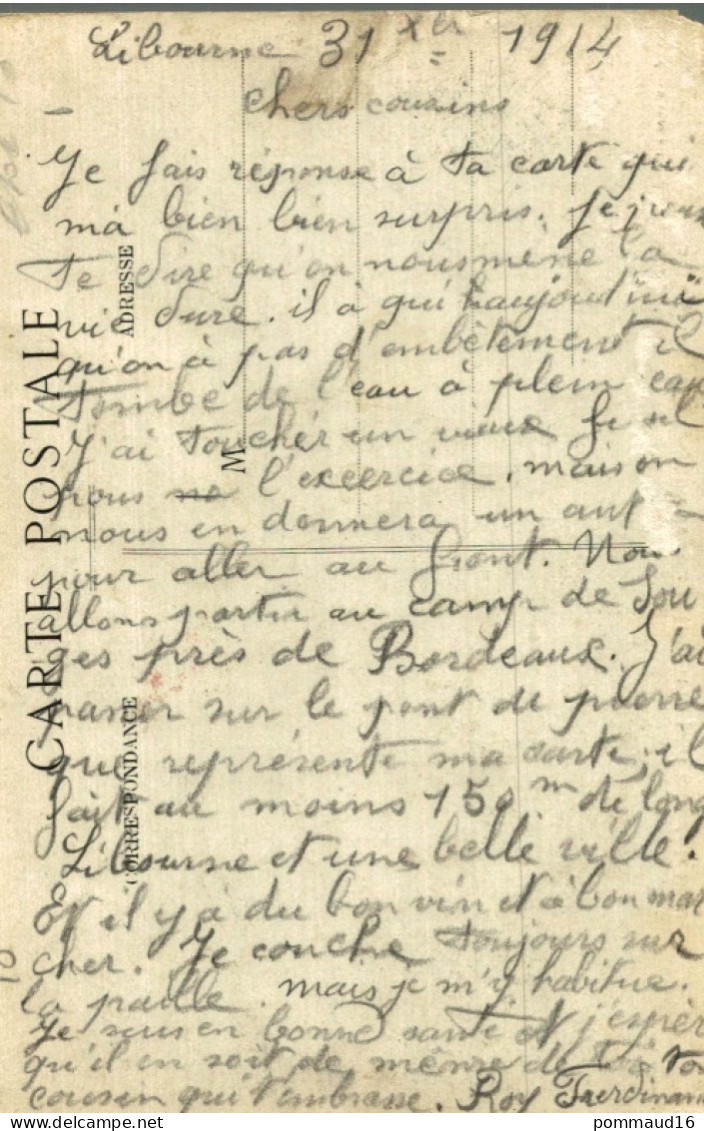 Libourne 31 Xbr 1914
chers cousins
Je fais réponse à ta carte qui
m'a bien bien surpris. Je peux
te dire qu'on nous mène la
vie dure. il à qu'aujoud'hui
qu'on à pas d'embêtement il
tombe de l'eau à plein eau
J'ai toucher un vieux fusil
pour l'excercice. mais on
nous en donnera un aut
pour aller au front. Nou
allons partir au camp de Sou
ges près de Bordeaux. J'ai
passer sur le pont de pierre
que représente ma carte, il
fait au moins 150 m de long
Libourne et une belle ville.
Et il y à du bon vin et à bon mar
cher. Je couche toujours sur
la paille. mais je m'y habitue.
Je suis en bonne santé et j'espèr
qu'il en soit de même de toi ton
cousin qui t'embrasse. Roy Ferdinand
CARTE POSTALE
CORRESPONDANCE
ADRESSE
M
pommaud16